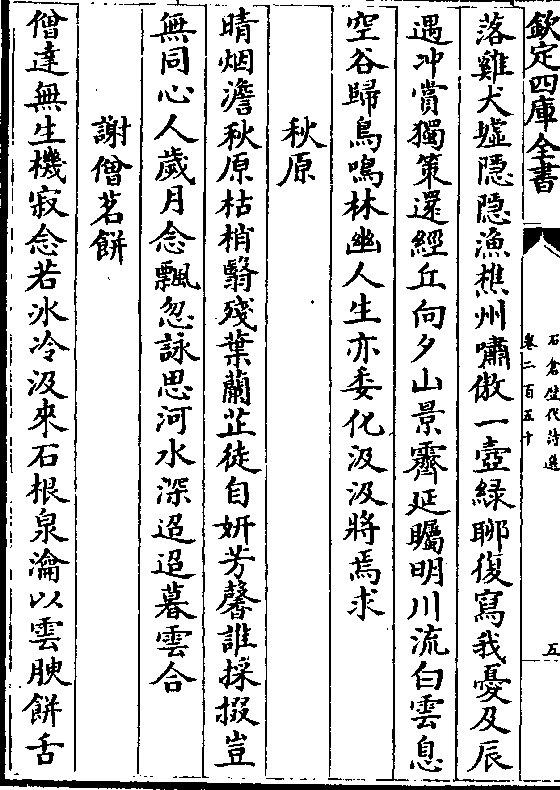 欽定四庫全書
石倉歴代詩選
卷二百五十
五
落雞犬墟隱隱漁樵州嘯傲一壺緑聊復寫我憂及辰
遇冲賞獨策還經丘向夕山景霽延矚明川流白雲息
空谷歸鳥鳴林幽人生亦委化汲汲將焉求
秋原
晴烟澹秋原枯梢翳殘葉蘭芷徒自妍芳馨誰採掇豈
無同心人歲月念飄忽詠思河水深迢迢暮雲合
謝僧茗餅
僧達無生機寂念若冰冷汲来石根泉瀹以雲腴餅舌